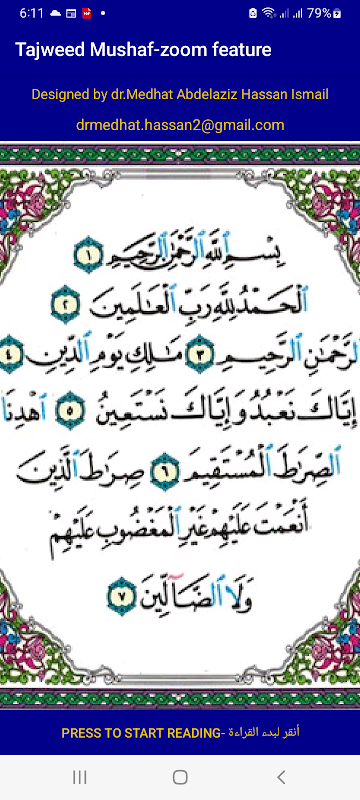 6:11 79%
Tajweed Mushaf-zoom feature
Designed by dr.Medhat Abdelaziz Hassan Ismail
drmedhat.hassan2@gmail.com
بِسْمِ ٱللَّهِ ٱلرَّحْمَٰنِ ٱلرَّحِيمِ ١
ٱلْحَمْدُ لِلَّهِ رَبِّ ٱلْعَٰلَمِينَ ٢
ٱلرَّحْمَٰنِ ٱلرَّحِيمِ ٣ مَٰلِكِ يَوْمِ ٱلدِّينِ ٤
إِيَّاكَ نَعْبُدُ وَإِيَّاكَ نَسْتَعِينُ ٥ ٱهْدِنَا
ٱلصِّرَٰطَ ٱلْمُسْتَقِيمَ ٦ صِرَٰطَ ٱلَّذِينَ
أَنْعَمْتَ عَلَيْهِمْ غَيْرِ ٱلْمَغْضُوبِ عَلَيْهِمْ
وَلَا ٱلضَّآلِّينَ ٧
PRESS TO START READING- أنقر لبدء القراءة